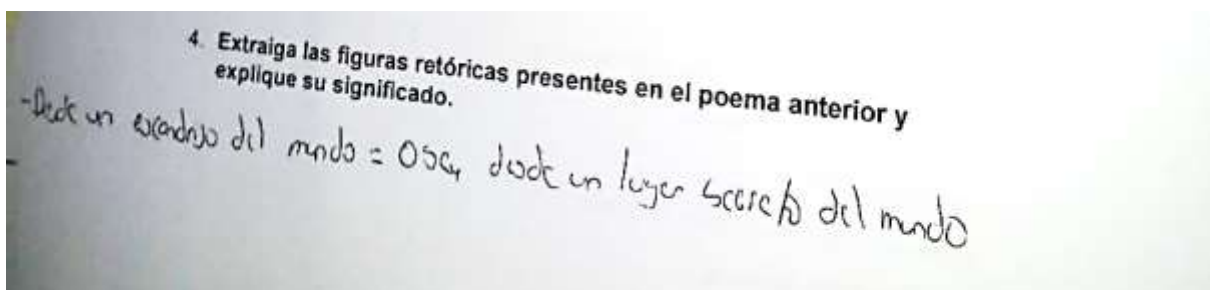 4. Extraiga las figuras retóricas presentes en el poema anterior y
explique su significado.
-Desde un escondrijo del mundo = Osea, desde un lugar secreto del mundo